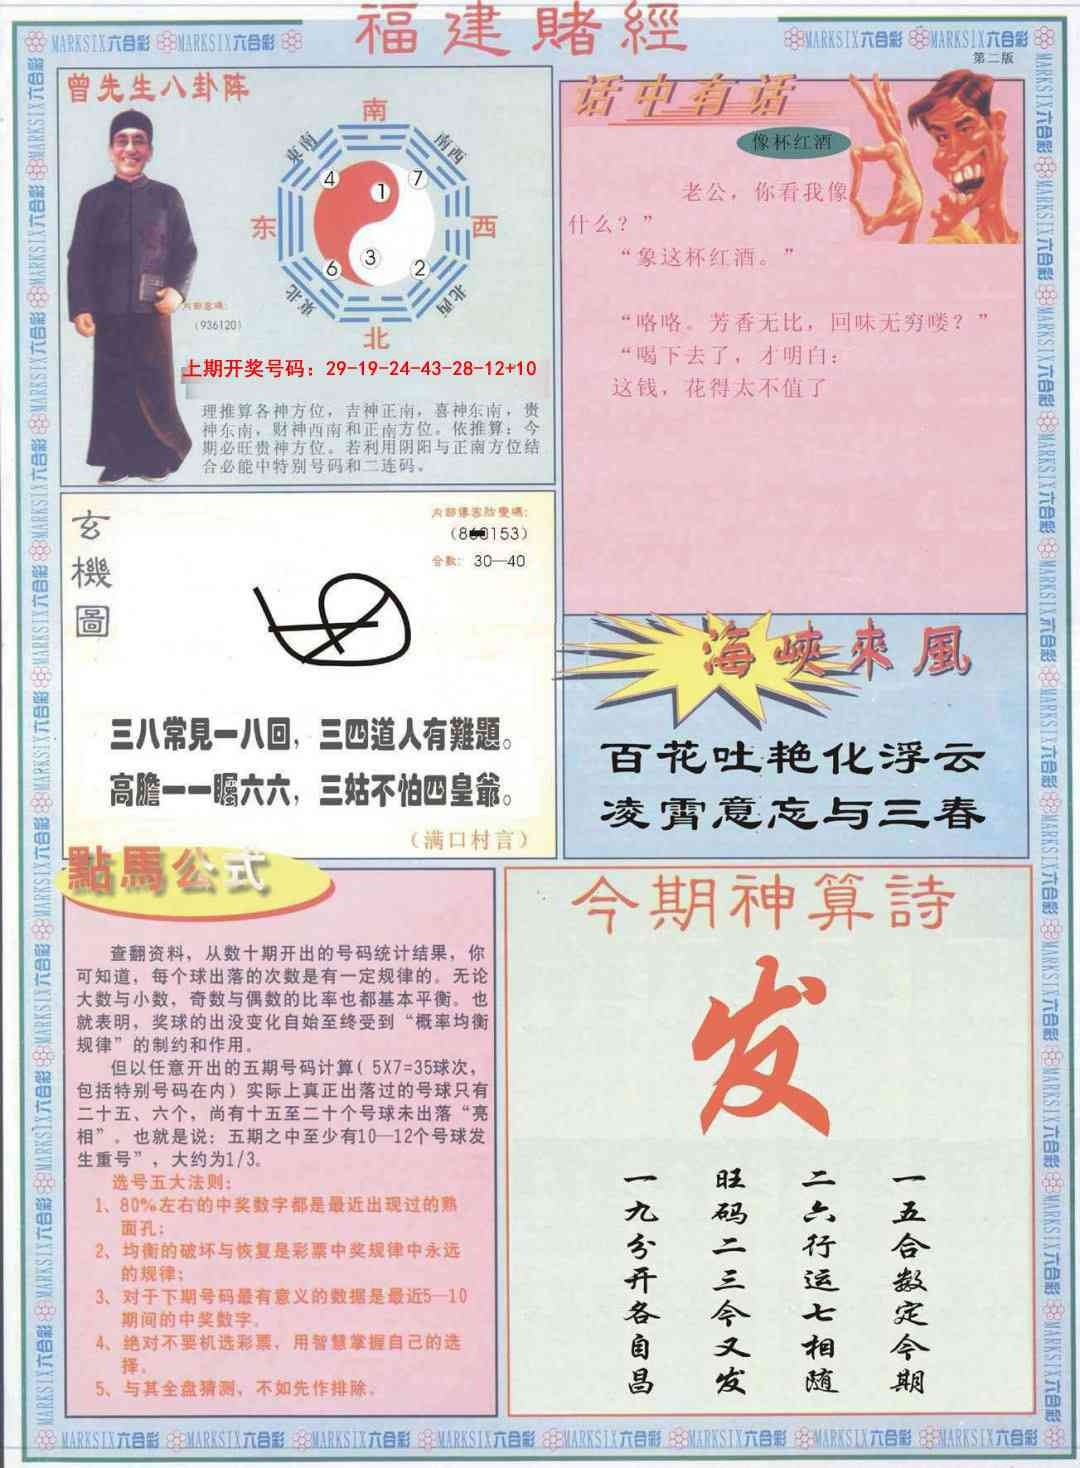 福建賭經
MARKSIX六合彩 MARKSIX六合彩 MARKSIX六合彩 MARKSIX六合彩
第二版
曾先生八卦阵
南
東南
南西
4
1
7
东
西
6
3
2
東北
北西
北
内部密碼:
(936120)
上期开奖号码：29-19-24-43-28-12+10
理推算各神方位，吉神正南，喜神东南，贵
神东南，财神西南和正南方位。依推算；今
期必旺贵神方位。若利用阴阳与正南方位结
合必能中特别号码和二连码。
话中有话
像杯红酒
老公，你看我像
什么？”
“象这杯红酒。”
“咯咯。芳香无比，回味无穷喽？”
“喝下去了，才明白：
这钱，花得太不值了
玄機圖
合数: 30—40
三八常見一八回，三四道人有難題。
高膽一一矚六六，三姑不怕四皇爺。
（满口村言）
海峽來風
百花吐艳化浮云
凌霄意忘与三春
點馬公式
查翻资料，从数十期开出的号码统计结果，你
可知道，每个球出落的次数是有一定规律的。无论
大数与小数，奇数与偶数的比率也都基本平衡。也
就表明，奖球的出没变化自始至终受到“概率均衡
规律”的制约和作用。
但以任意开出的五期号码计算（5X7=35球次，
包括特别号码在内）实际上真正出落过的号球只有
二十五、六个，尚有十五至二十个号球未出落“亮
相”。也就是说：五期之中至少有10—12个号球发
生重号”，大约为1/3。
选号五大法则：
1、80%左右的中奖数字都是最近出现过的熟
面孔；
2、均衡的破坏与恢复是彩票中奖规律中永远
的规律；
3、对于下期号码最有意义的数据是最近5—10
期间的中奖数字。
4、绝对不要机选彩票，用智慧掌握自己的选
择。
5、与其全盘猜测，不如先作排除。
今期神算詩
发
一五合数定今期
二六行运七相随
旺码二三今又发
一九分开各自昌
MARKSIX六合彩 MARKSIX六合彩 MARKSIX六合彩 MARKSIX六合彩 MARKSIX六合彩 MARKSIX六合彩 MARKSIX六合彩 MARKSIX六合彩